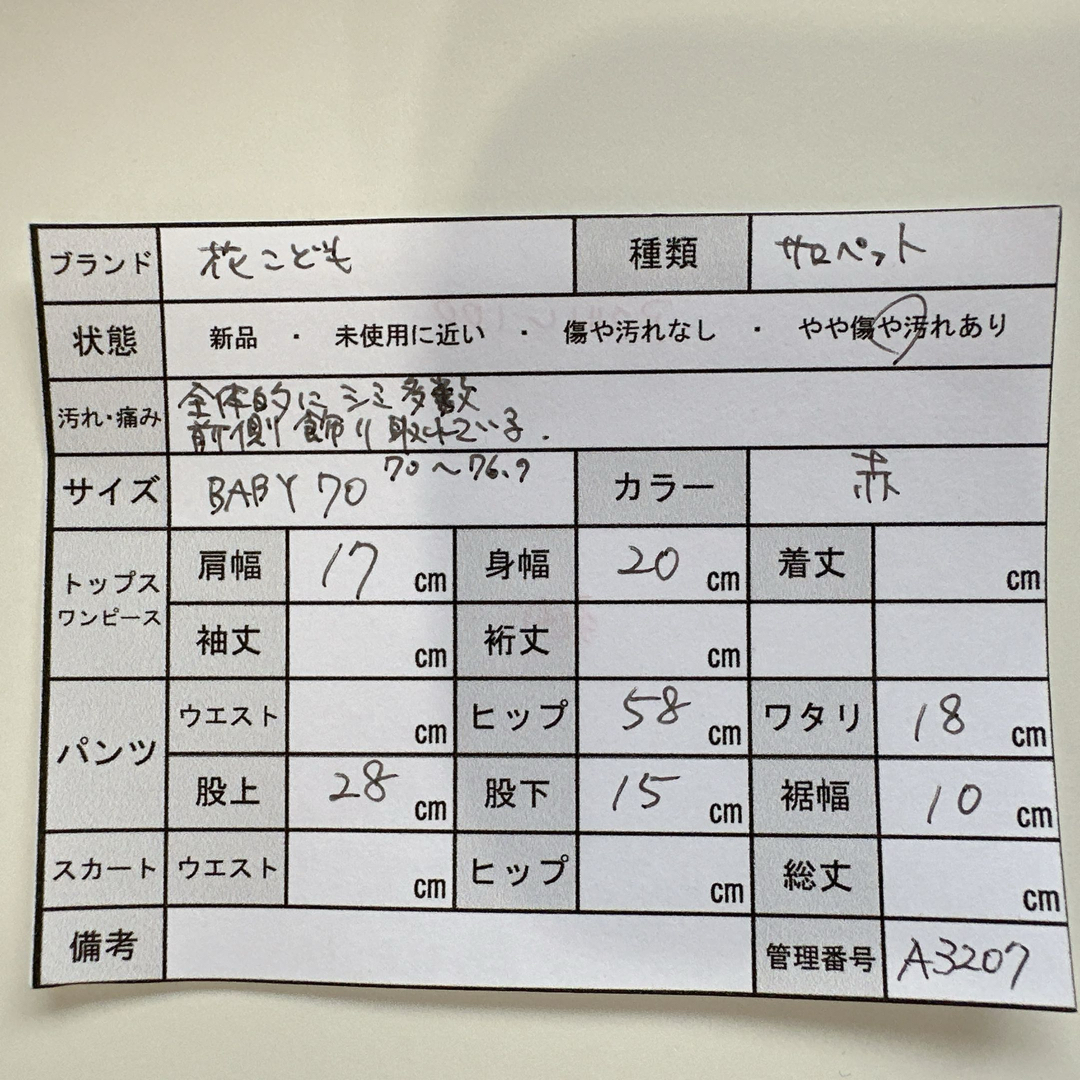 ブランド 花こども 種類 サロペット
状態 新品 ・ 未使用に近い ・ 傷や汚れなし ・ やや傷や汚れあり
汚れ・痛み 全体的にシミ多数
前側飾り取れている.
サイズ BABY 70 70〜76.9 カラー 赤
トップス ワンピース 肩幅 17 cm 身幅 20 cm 着丈 cm
袖丈 cm 裄丈 cm
パンツ ウエスト cm ヒップ 58 cm ワタリ 18 cm
股上 28 cm 股下 15 cm 裾幅 10 cm
スカート ウエスト cm ヒップ cm 総丈 cm
備考 管理番号 A3207